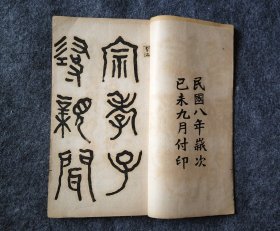 民國八年歲次
己未九月付印
宗孝子
尋親聞